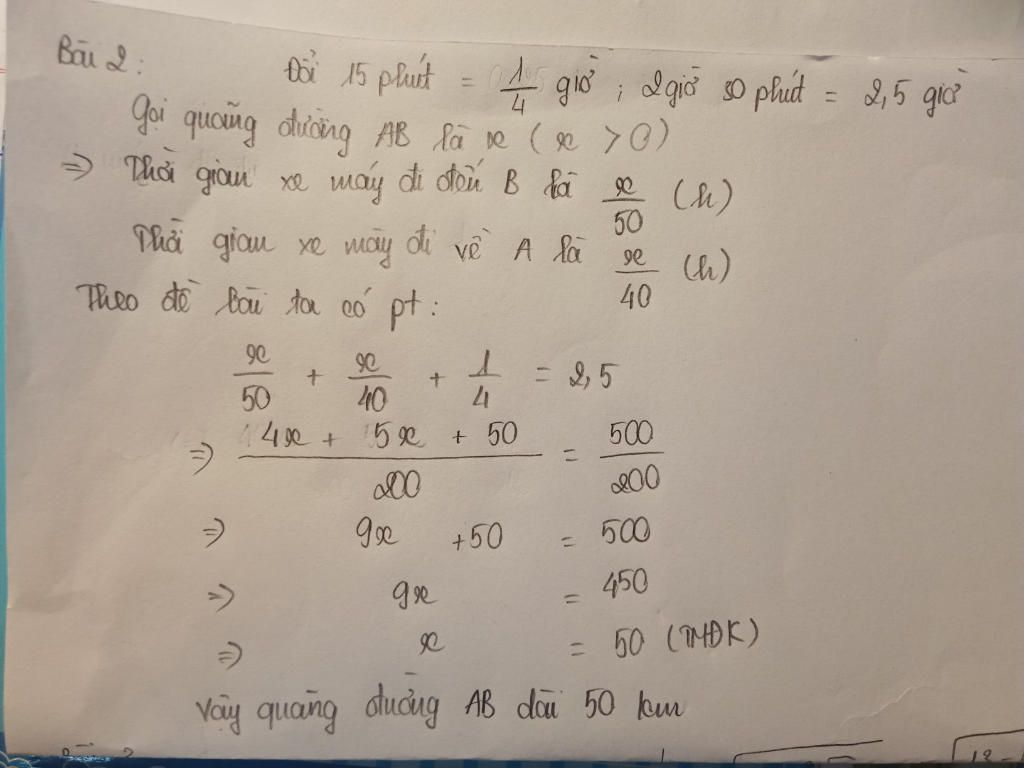 Bài 2:
Đổi 15 phút = 1/4 giờ ; 2 giờ 30 phút = 2,5 giờ
Gọi quãng đường AB là x ( x > 0)
=> Thời gian xe máy đi đến B là x/50 (h)
Thời gian xe máy đi về A là x/40 (h)
Theo đề bài ta có pt :
x/50 + x/40 + 1/4 = 2,5
=> (4x + 5x + 50)/200 = 500/200
=> 9x + 50 = 500
=> 9x = 450
=> x = 50 (TMĐK)
Vậy quãng đường AB dài 50 km